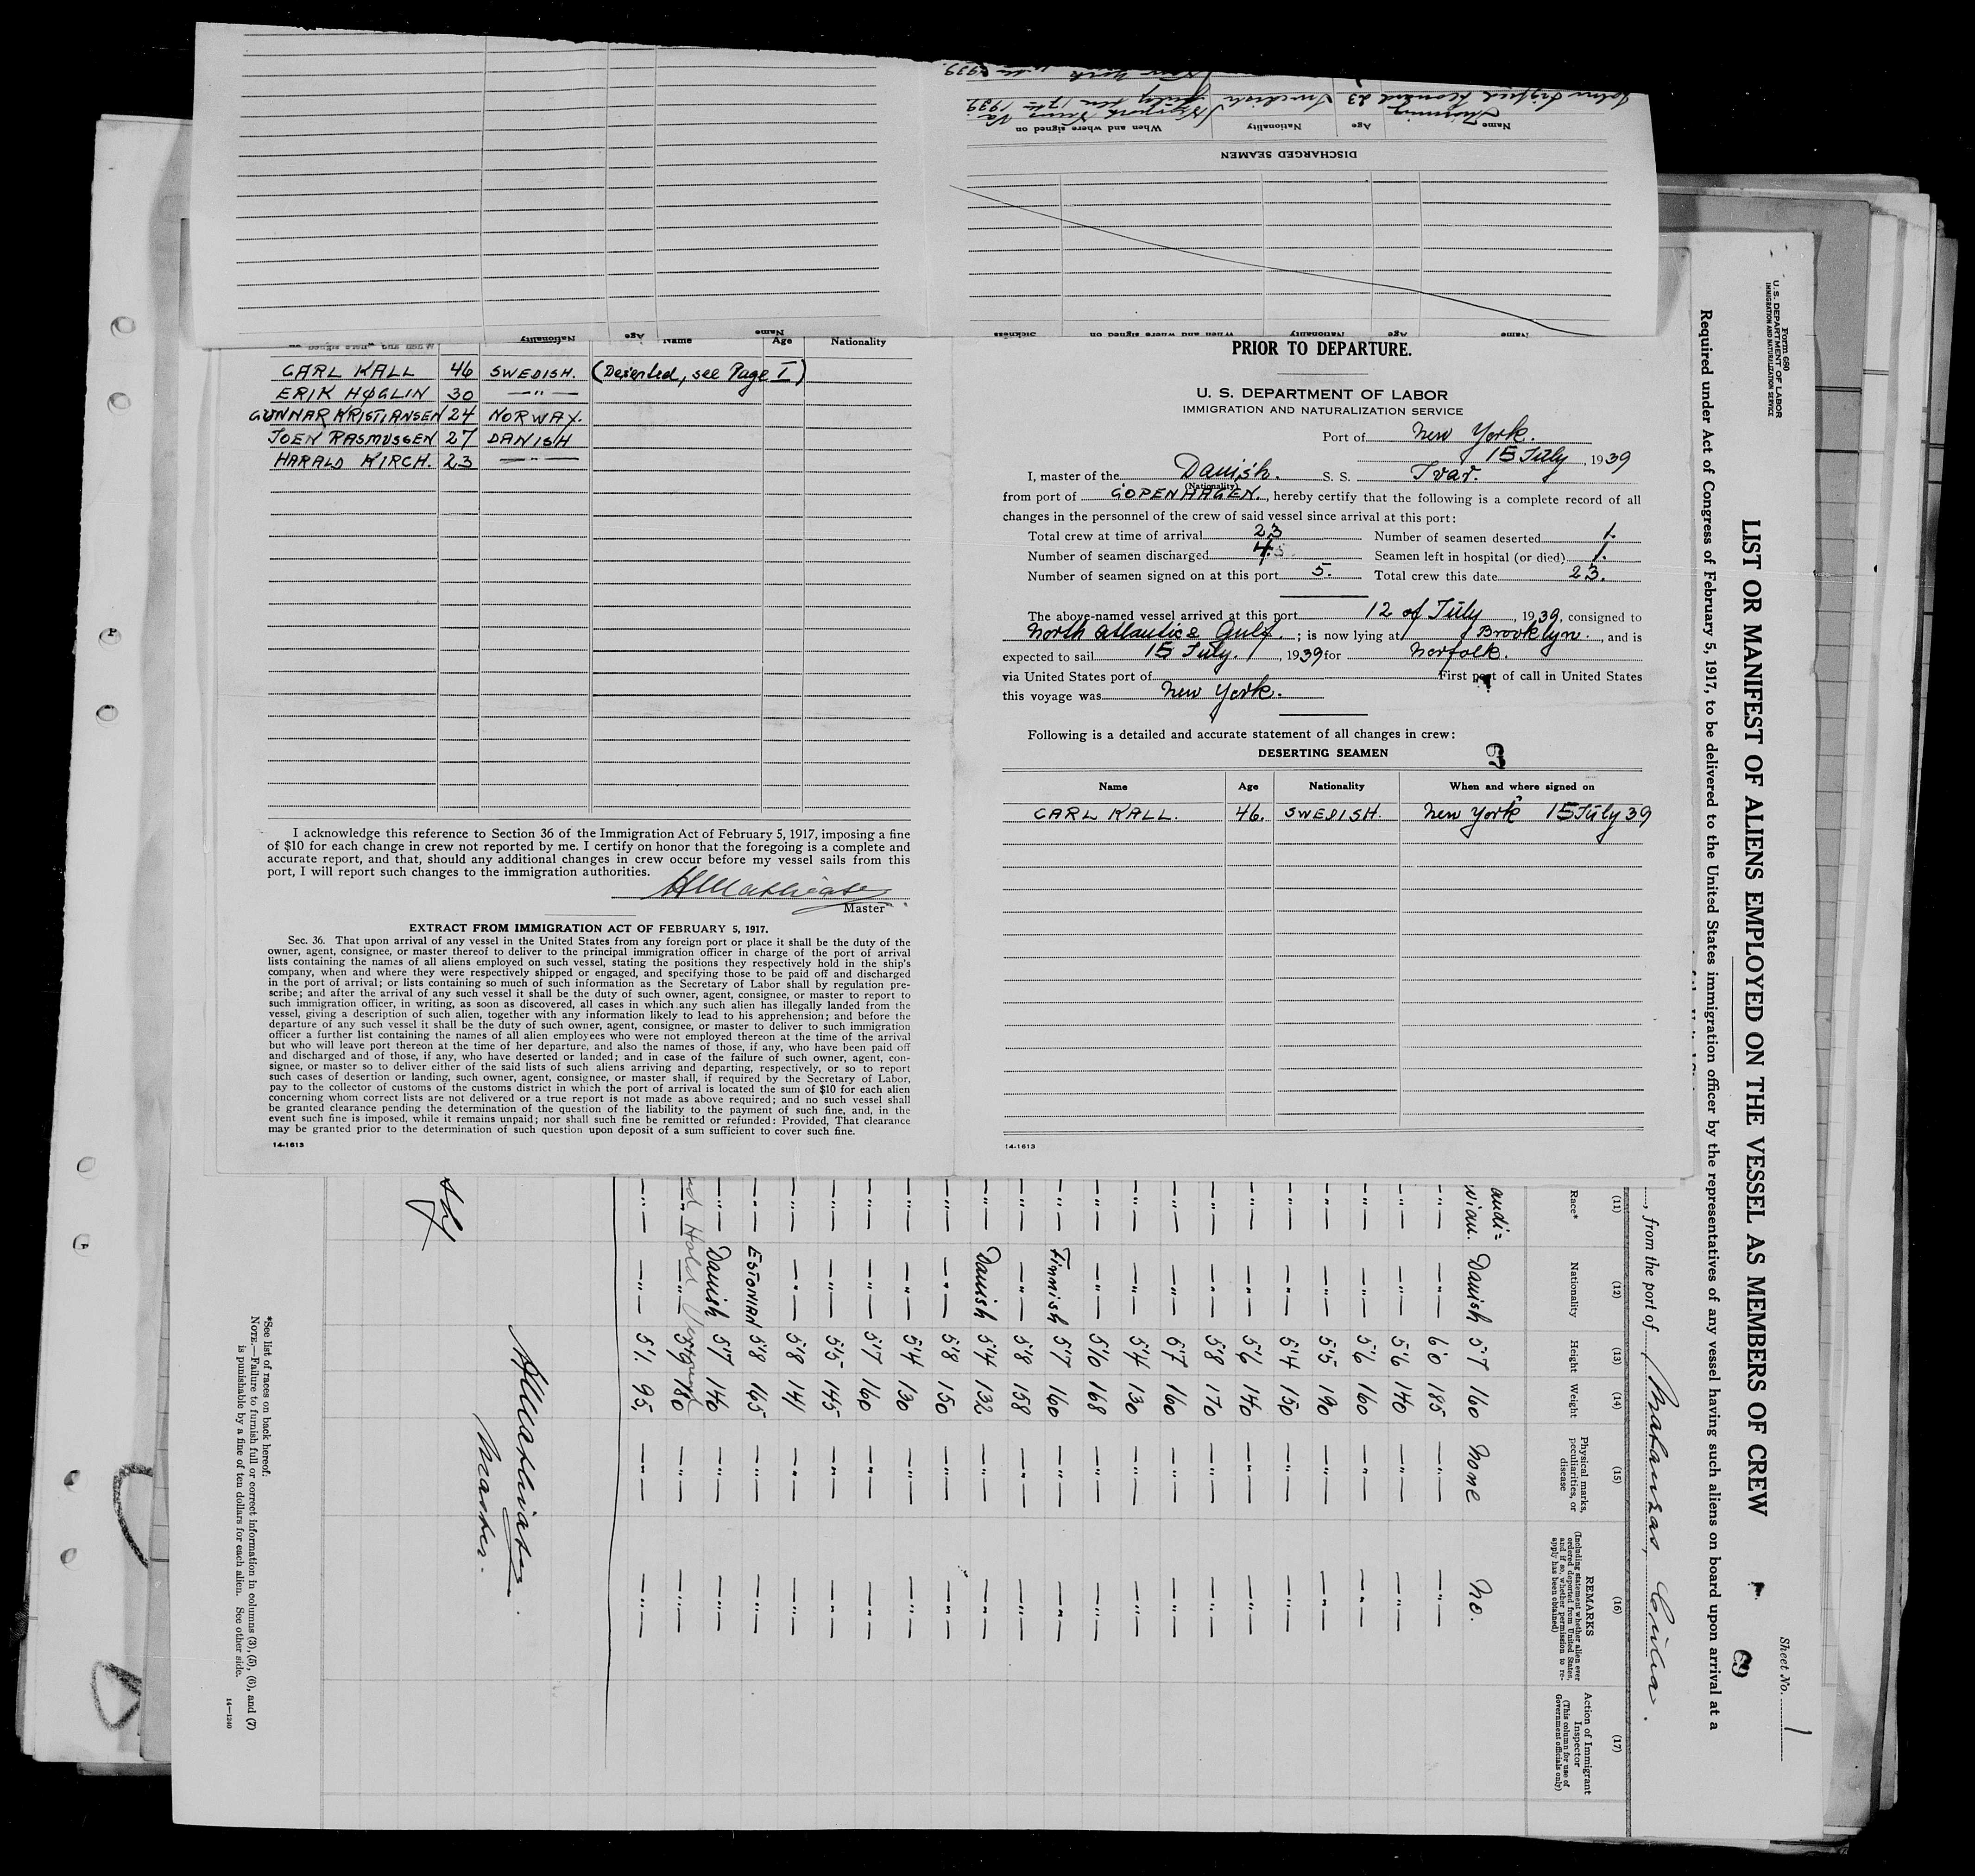 1939.
John Sigfrid Leonard 23 Swedish
Newport News Va.
July ten 17th 1939.
Name Age Nationality When and where signed on
DISCHARGED SEAMEN
Name Age Nationality When and where signed on Sickness
When and where signed on Nationality Age Name
Name Age Nationality
CARL KALL 46 SWEDISH. (Deserted, see Page I)
ERIK HØGLIN 30 —"—
GUNNAR KRISTIANSEN 24 NORWAY.
JOEN RASMUSSEN 27 DANISH
HARALD KIRCH. 23 —"—
I acknowledge this reference to Section 36 of the Immigration Act of February 5, 1917, imposing a fine
of $10 for each change in crew not reported by me. I certify on honor that the foregoing is a complete and
accurate report, and that, should any additional changes in crew occur before my vessel sails from this
port, I will report such changes to the immigration authorities.
Master
EXTRACT FROM IMMIGRATION ACT OF FEBRUARY 5, 1917.
Sec. 36. That upon arrival of any vessel in the United States from any foreign port or place it shall be the duty of the
owner, agent, consignee, or master thereof to deliver to the principal immigration officer in charge of the port of arrival
lists containing the names of all aliens employed on such vessel, stating the positions they respectively hold in the ship's
company, when and where they were respectively shipped or engaged, and specifying those to be paid off and discharged
in the port of arrival; or lists containing so much of such information as the Secretary of Labor shall by regulation pre-
scribe; and after the arrival of any such vessel it shall be the duty of such owner, agent, consignee, or master to report to
such immigration officer, in writing, as soon as discovered, all cases in which any such alien has illegally landed from the
vessel, giving a description of such alien, together with any information likely to lead to his apprehension; and before the
departure of any such vessel it shall be the duty of such owner, agent, consignee, or master to deliver to such immigration
officer a further list containing the names of all alien employees who were not employed thereon at the time of the arrival
but who will leave port thereon at the time of her departure, and also the names of those, if any, who have been paid off
and discharged and of those, if any, who have deserted or landed; and in case of the failure of such owner, agent, con-
signee, or master so to deliver either of the said lists of such aliens arriving and departing, respectively, or so to report
such cases of desertion or landing, such owner, agent, consignee, or master shall, if required by the Secretary of Labor,
pay to the collector of customs of the customs district in which the port of arrival is located the sum of $10 for each alien
concerning whom correct lists are not delivered or a true report is not made as above required; and no such vessel shall
be granted clearance pending the determination of the question of the liability to the payment of such fine, and, in the
event such fine is imposed, while it remains unpaid; nor shall such fine be remitted or refunded: Provided, That clearance
may be granted prior to the determination of such question upon deposit of a sum sufficient to cover such fine.
14-1613
PRIOR TO DEPARTURE.
U. S. DEPARTMENT OF LABOR
IMMIGRATION AND NATURALIZATION SERVICE
Port of New York.
15 July, 1939
I, master of the Danish. S. S. Ivar.
(Nationality)
from port of COPENHAGEN., hereby certify that the following is a complete record of all
changes in the personnel of the crew of said vessel since arrival at this port:
Total crew at time of arrival 23 Number of seamen deserted 1.
Number of seamen discharged 4. Seamen left in hospital (or died) 1.
Number of seamen signed on at this port 5. Total crew this date 23.
The above-named vessel arrived at this port 12 of July, 1939, consigned to
North Atlantic & Gulf.; is now lying at Brooklyn., and is
expected to sail 15 July., 1939 for Norfolk.
via United States port of First port of call in United States
this voyage was New York.
Following is a detailed and accurate statement of all changes in crew:
DESERTING SEAMEN
Name Age Nationality When and where signed on
CARL KALL. 46. SWEDISH. New York 15 July 39
14-1613
Form 680
U. S. DEPARTMENT OF LABOR
IMMIGRATION AND NATURALIZATION SERVICE
Sheet No. 1
LIST OR MANIFEST OF ALIENS EMPLOYED ON THE VESSEL AS MEMBERS OF CREW
69
Required under Act of Congress of February 5, 1917, to be delivered to the United States immigration officer by the representatives of any vessel having such aliens on board upon arrival at a
, from the port of Matanzas, Cuba.
(11) (12) (13) (14) (15) (16) (17)
Race* Nationality Height Weight Physical marks, peculiarities, or disease
REMARKS
(Including statement whether alien ever ordered deported from United States, and if so, whether permission to re-apply has been obtained)
Action of Immigrant Inspector
(This column for use of Government officials only)
andi=
vian. Danish 5'7 160 None No.
—"— —"— 6'0 185 —"— —"—
—"— —"— 5'6 140 —"— —"—
—"— —"— 5'6 160 —"— —"—
—"— —"— 5'5 190 —"— —"—
—"— —"— 5'4 150 —"— —"—
—"— —"— 5'6 140 —"— —"—
—"— —"— 5'8 170 —"— —"—
—"— —"— 5'7 160 —"— —"—
—"— —"— 5'4 130 —"— —"—
—"— —"— 5'10 168 —"— —"—
—"— Finnish 5'7 160 —"— —"—
—"— —"— 5'8 158 —"— —"—
—"— Danish 5'4 132 —"— —"—
—"— —"— 5'8 150 —"— —"—
—"— —"— 5'4 130 —"— —"—
—"— —"— 5'7 160 —"— —"—
—"— —"— 5'5 145 —"— —"—
—"— —"— 5'8 141 —"— —"—
—"— ESTONIAN 5'8 165 —"— —"—
—"— Danish 5'7 140 —"— —"—
—"— —"— 5'9 180 —"— —"—
Hold
—"— —"— 5'1. 95. —"— —"—
Master.
*See list of races on back hereof.
NOTE.—Failure to furnish full or correct information in columns (3), (5), (6), and (7)
is punishable by a fine of ten dollars for each alien. See other side.
14—1240